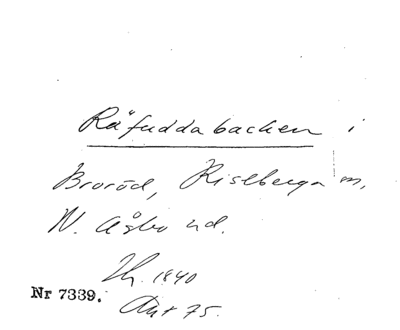 Räfuddabacken i
Broröd, Riseberga sn,
N. Åsbo hd.
Th. 1840
Nr 7339.
75.